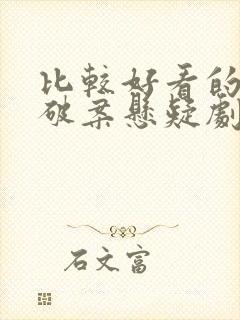 比較好看的
破案懸疑劇
石文富